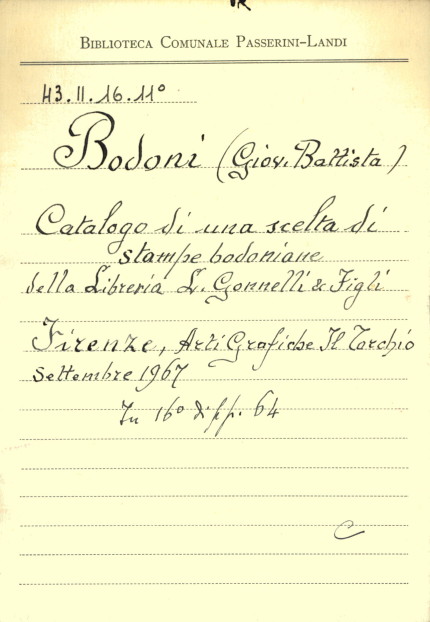 BIBLIOTECA COMUNALE PASSERINI-LANDI
43.II.16.11°
Bodoni (Giov. Battista)
Catalogo di una scelta di
stampe bodoniane
della Libreria L. Gonnelli & Figli
Firenze, Arti Grafiche Il Torchio
Settembre 1967
In 16° di pp. 64
C